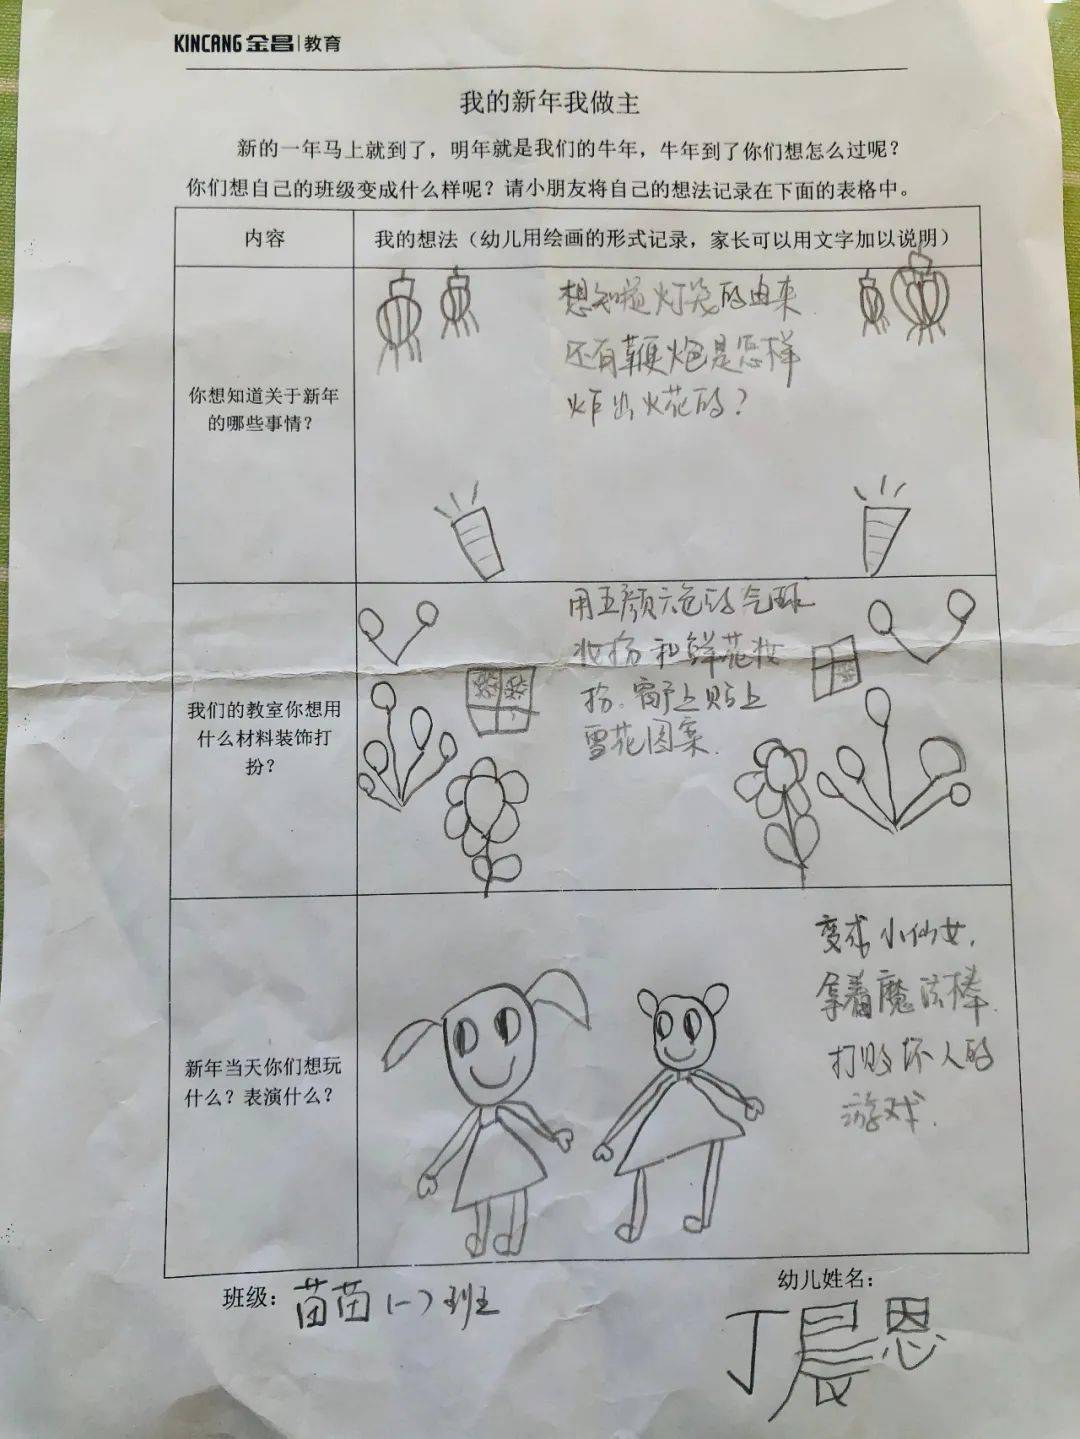 KINCANG 金昌|教育
我的新年我做主
新的一年马上就到了，明年就是我们的牛年，牛年到了你们想怎么过呢？
你们想自己的班级变成什么样呢？请小朋友将自己的想法记录在下面的表格中。
内容
我的想法（幼儿用绘画的形式记录，家长可以用文字加以说明）
你想知道关于新年
的哪些事情？
想知道灯笼的由来
还有鞭炮是怎样
炸出火花的？
我们的教室你想用
什么材料装饰打
扮？
用五颜六色的气球
妆扮和鲜花妆
扮.窗户上贴上
雪花图案.
新年当天你们想玩
什么？表演什么？
变成小仙女，
拿着魔法棒.
打败坏人的
游戏.
班级：苗苗(一)班
幼儿姓名：
丁晨恩